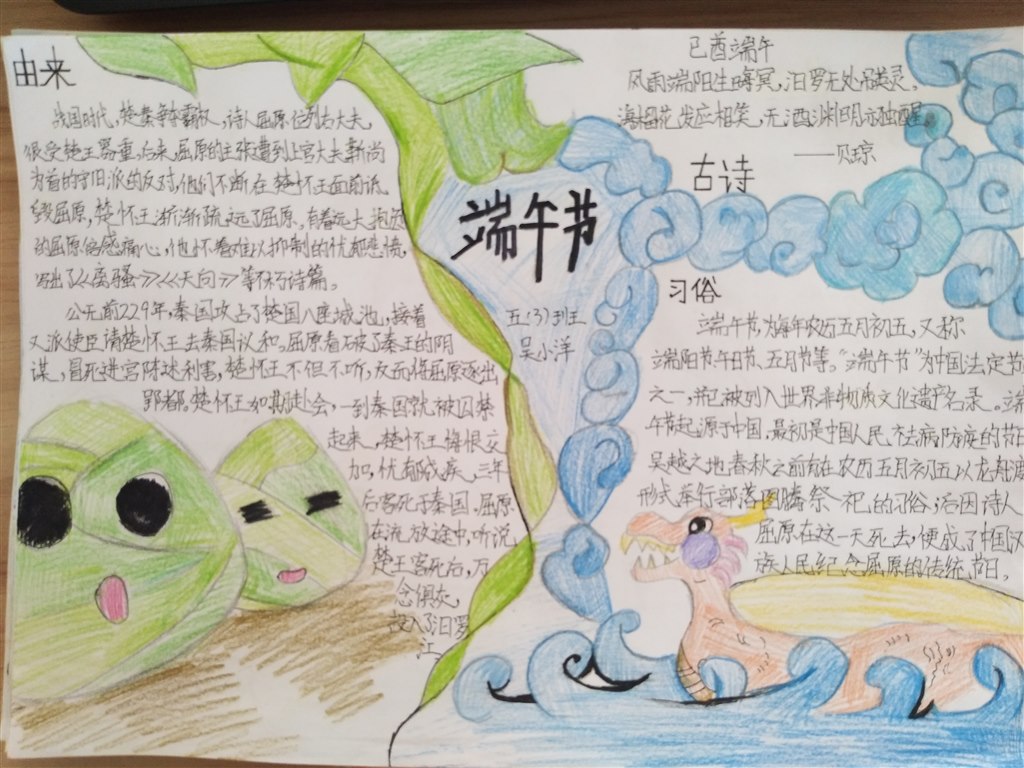 由来
战国时代，楚秦争夺霸权，诗人屈原位列右大夫，
很受楚王器重，后来，屈原的主张遭到上官大夫靳尚
为首的守旧派的反对，他们不断在楚怀王面前诋
毁屈原，楚怀王渐渐疏远了屈原，有着远大抱负
的屈原倍感痛心，他怀着难以抑制的忧郁悲愤，
写出了《离骚》《天向》等不朽诗篇。
公元前229年，秦国攻占了楚国八座城池，接着
又派使臣请楚怀王去秦国议和。屈原看破了秦王的阴
谋，冒死进宫陈述利害，楚怀王不但不听，反而将屈原逐出
郢都。楚怀王如期赴会，一到秦国就被囚禁
起来，楚怀王悔恨交
加，忧郁成疾，三年
后客死于秦国。屈原
在流放途中，听说
楚王客死后，万
念俱灰，
投入了汨罗
江
端午节
五(3)班
吴小洋
己酉端午
风雨端阳生晦冥，汨罗无处吊英灵。
海榴花发应相笑，无酒渊明亦独醒。
——贝琼
古诗
习俗
端午节为每年农历五月初五，又称
端阳节、午日节、五月节等。“端午节”为中国法定节
之一，并已被列入世界非物质文化遗产名录。端
午节起源于中国，最初是中国人民祛病防疫的节日
吴越之地春秋之前有在农历五月初五以龙舟
形式举行部落图腾祭祀的习俗；后因诗人
屈原在这一天死去，便成了中国汉
族人民纪念屈原的传统节日。